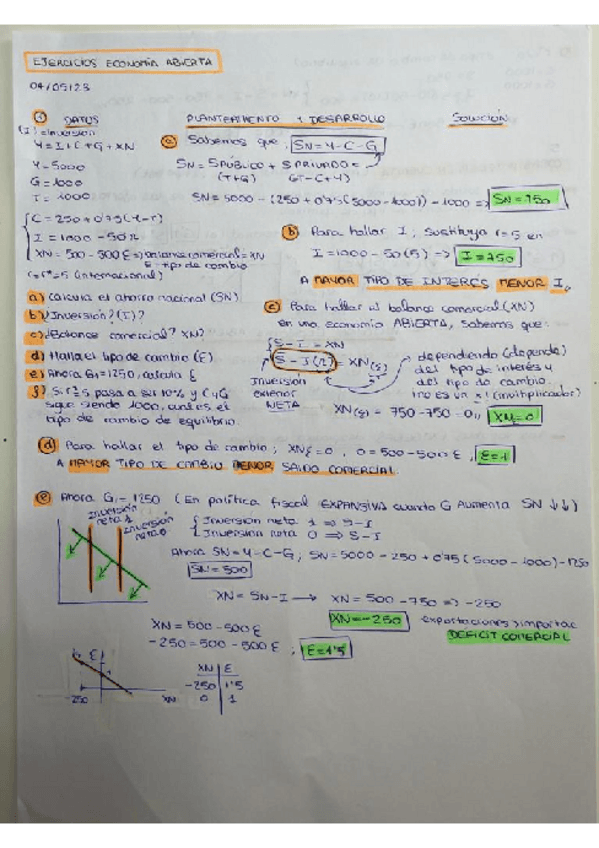 EJERCICIOS ECONOMÍA ABIERTA
04/05/23
① DATOS
PLANTEAMIENTO Y DESARROLLO
SOLUCIÓN
(I) = Inversión
Y = I + C + G + XN
Y = 5000
G = 1000
T = 1000
C = 250 + 0'75 (Y-T)
I = 1000 - 50r
XN = 500 - 500 ε => balanza comercial = XN
ε = tipo de cambio
r = r* = 5 (internacional)
a) Calcula el ahorro nacional (SN)
b) ¿Inversión? (I)?
c) ¿Balance comercial? XN?
d) Halla el tipo de cambio (ε)
e) Ahora G₁ = 1250, calcula ε
f) Si r* = 5 pasa a ser 10% y C y G
sigue siendo 1000, cuál es el
tipo de cambio de equilibrio.
a) Sabemos que: SN = Y - C - G
SN = S PÚBLICO + S PRIVADO =
(T+G) (T-C+Y)
SN = 5000 - (250 + 0'75 (5000 - 1000)) - 1000 => SN = 750
b) Para hallar I, Sustituyo r=5 en
I = 1000 - 50(5) => I = 750
A MAYOR TIPO DE INTERÉS MENOR I.
c) Para hallar el balance comercial (XN)
en una economía ABIERTA, Sabemos que:
S - I = XN
S - I(r) = XN(ε)
Inversión
exterior
NETA
dependiendo (depende)
del tipo de interés y
del tipo de cambio
no es un x! (multiplicador)
XN(ε) = 750 - 750 = 0 XN = 0
d) Para hallar el tipo de cambio; XNε = 0, 0 = 500 - 500 ε, ε = 1
A MAYOR TIPO DE CAMBIO MENOR SALDO COMERCIAL.
e) Ahora G₁ = 1250 (En política fiscal EXPANSIVA cuando G Aumenta SN ↓↓)
Inversión
neta 1
Inversión
neta 0
Inversión neta 1 => S-I
Inversión neta 0 => S-I
Ahora SN = Y - C - G; SN = 5000 - 250 + 0'75 (5000 - 1000) - 1250
SN = 500
XN = SN - I → XN = 500 - 750 => -250
XN = 500 - 500 ε
XN = -250
exportaciones > importac
-250 = 500 - 500 ε; ε = 1'5
DÉFICIT COMERCIAL
ε
1
-250
XN
XN ε
-250 1'5
0 1